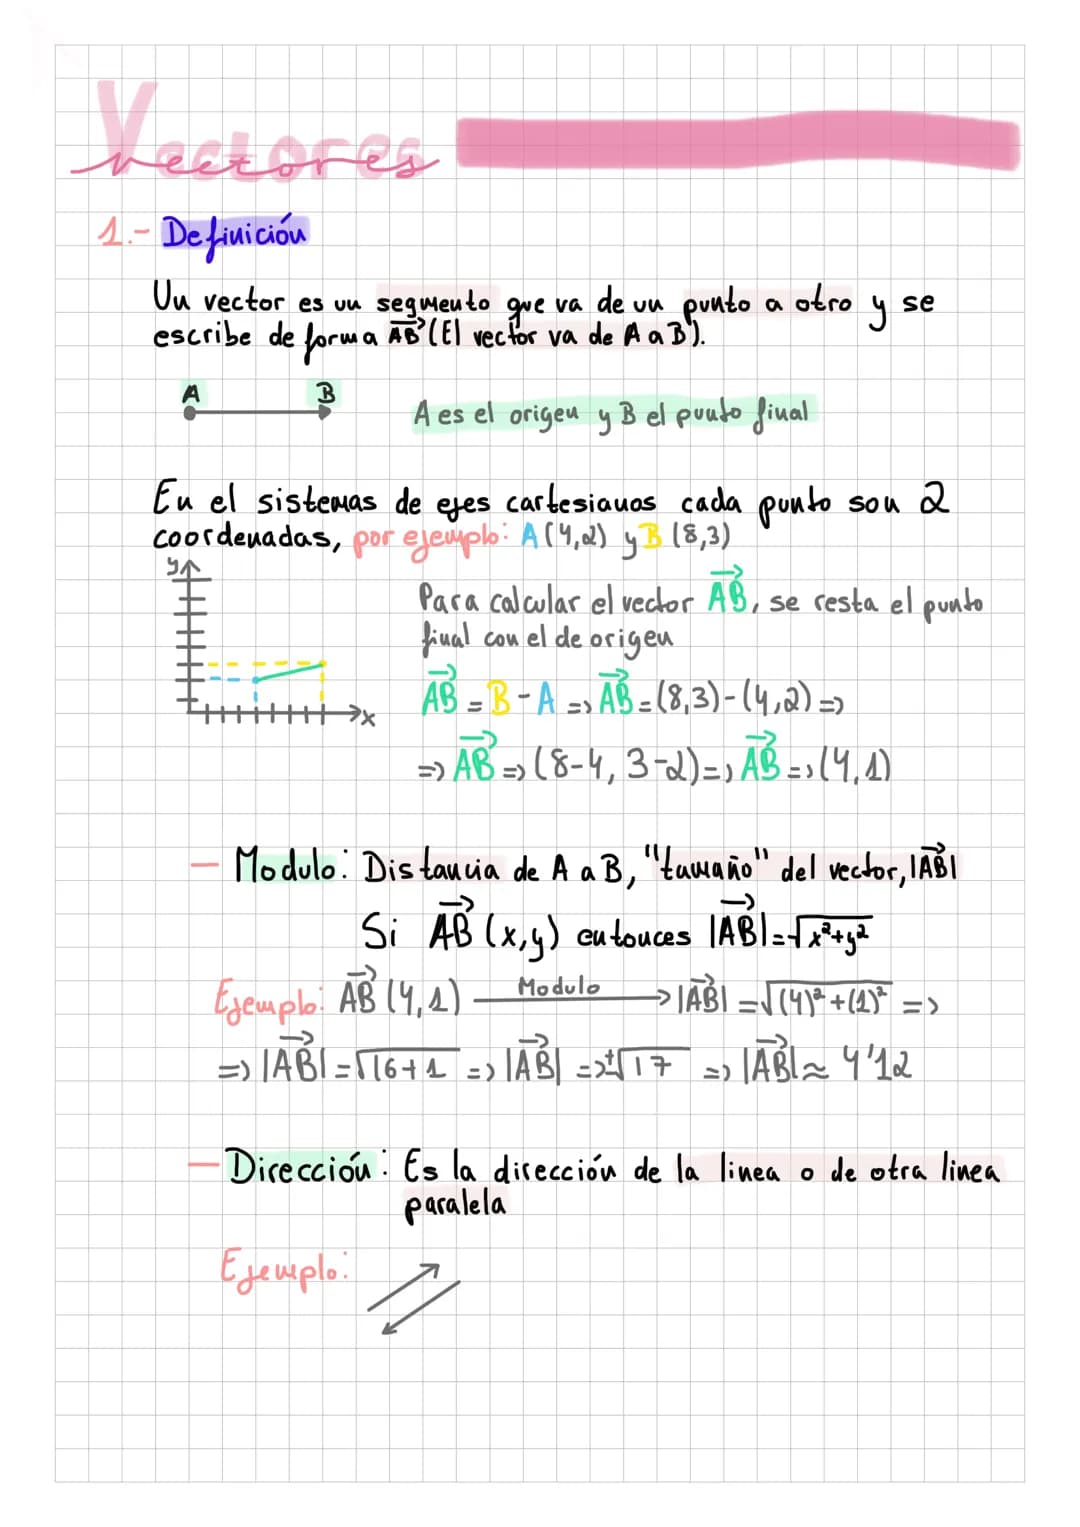 Vectores
1.- Definición
Un vector es un segmento que va de un punto a otro y se
escribe de forma AB⃗ (El vector va de A a B).
A B
A es el origen y B el punto final
En el sistemas de ejes cartesianos cada punto son 2
coordenadas, por ejemplo: A(4,2) y B (8,3)
y
Para calcular el vector AB⃗, se resta el punto
final con el de origen
AB⃗ = B - A => AB⃗ = (8,3)-(4,2) =>
x
=> AB⃗ => (8-4, 3-2) => AB⃗ => (4,1)
- Modulo: Distancia de A a B, "tamaño" del vector, |AB⃗|
Si AB⃗ (x,y) entonces |AB⃗| = √x²+y²
Ejemplo: AB⃗ (4,1) Modulo → |AB⃗| = √(4)²+(1)² =>
=> |AB⃗| = √16+1 => |AB⃗| => ±√17 => |AB⃗| ≈ 4'12
- Dirección: Es la dirección de la linea o de otra linea
paralela
Ejemplo: